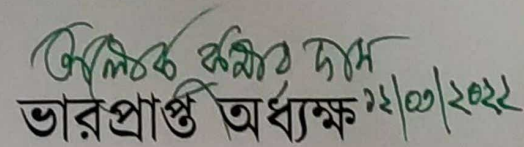 কুমার দাস
ভারপ্রাপ্ত অধ্যক্ষ ১২/০৩/২০২২